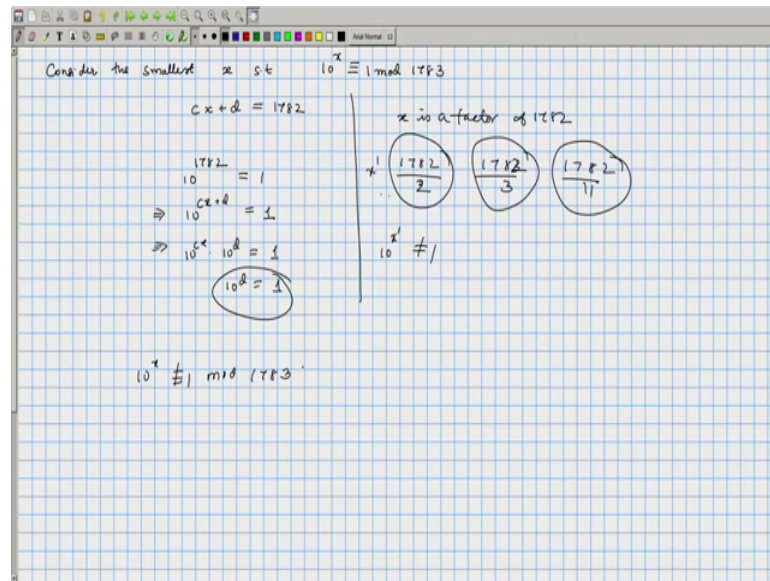 Arial Normal 12
Consider the smallest x s.t 10^x ≡ 1 mod 1783
cx+d = 1782
10^1782 = 1
⇒ 10^cx+d = 1
⇒ 10^cx · 10^d = 1
10^d = 1
x is a factor of 1782
x' 1782/2 1782/3 1782/11
10^x' ≠ 1
10^x ≢ 1 mod 1783